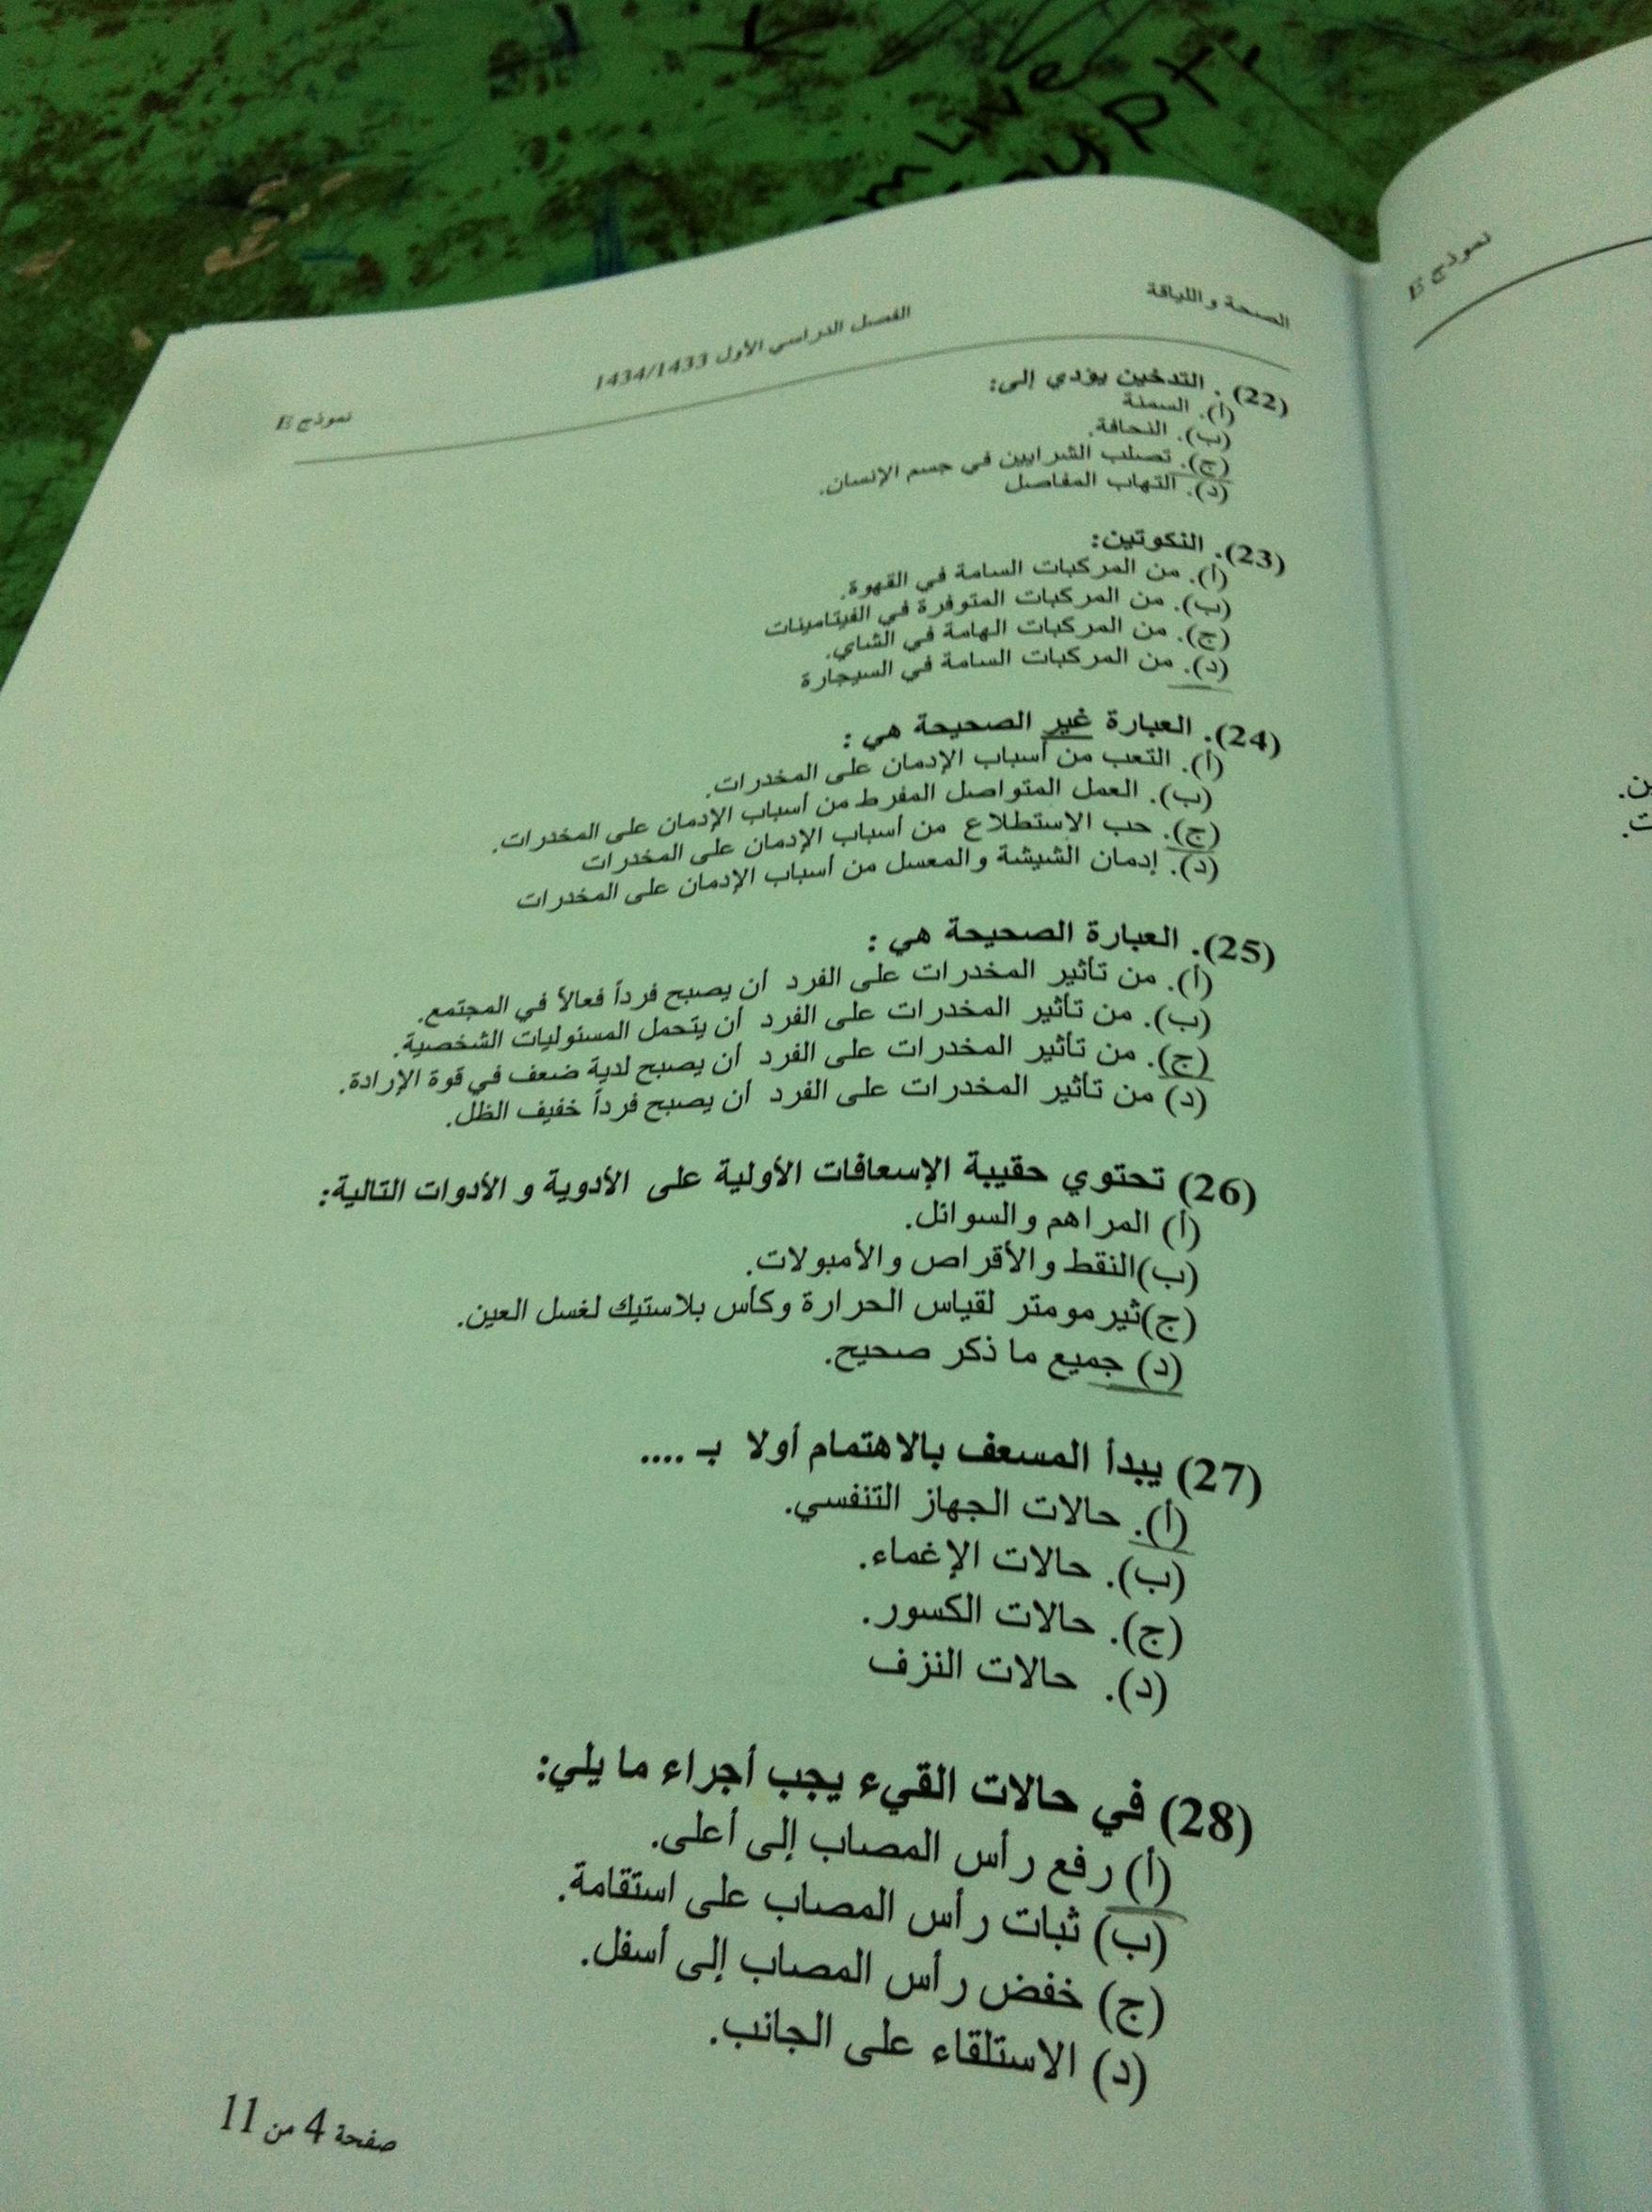 Live
Egypt.
الصحة واللياقة
الفصل الدراسي الأول 1434/1433
نموذج B
(22). التدخين يؤدي إلى:
(أ). السمنة
(ب). النحافة.
(ج). تصلب الشرايين في جسم الإنسان.
(د). التهاب المفاصل
(23). النكوتين:
(أ). من المركبات السامة في القهوة.
(ب). من المركبات المتوفرة في الفيتامينات
(ج). من المركبات الهامة في الشاي.
(د). من المركبات السامة في السيجارة
(24). العبارة غير الصحيحة هي :
(أ). التعب من أسباب الإدمان على المخدرات.
(ب). العمل المتواصل المفرط من أسباب الإدمان على المخدرات.
(ج). حب الإستطلاع من أسباب الإدمان على المخدرات
(د). إدمان الشيشة والمعسل من أسباب الإدمان على المخدرات
(25). العبارة الصحيحة هي :
(أ). من تأثير المخدرات على الفرد أن يصبح فرداً فعالاً في المجتمع.
(ب). من تأثير المخدرات على الفرد أن يتحمل المسئوليات الشخصية.
(ج). من تأثير المخدرات على الفرد أن يصبح لدية ضعف في قوة الإرادة.
(د) من تأثير المخدرات على الفرد أن يصبح فرداً خفيف الظل.
(26) تحتوي حقيبة الإسعافات الأولية على الأدوية و الأدوات التالية:
(أ) المراهم والسوائل.
(ب)النقط والأقراص والأمبولات.
(ج)ثيرمومتر لقياس الحرارة وكأس بلاستيك لغسل العين.
(د) جميع ما ذكر صحيح.
(27) يبدأ المسعف بالاهتمام أولا بـ ....
(أ). حالات الجهاز التنفسي.
(ب). حالات الإغماء.
(ج). حالات الكسور.
(د). حالات النزف
(28) في حالات القيء يجب أجراء ما يلي:
(أ) رفع رأس المصاب إلى أعلى.
(ب) ثبات رأس المصاب على استقامة.
(ج) خفض رأس المصاب إلى أسفل.
(د) الاستلقاء على الجانب.
صفحة 4 من 11
نموذج B